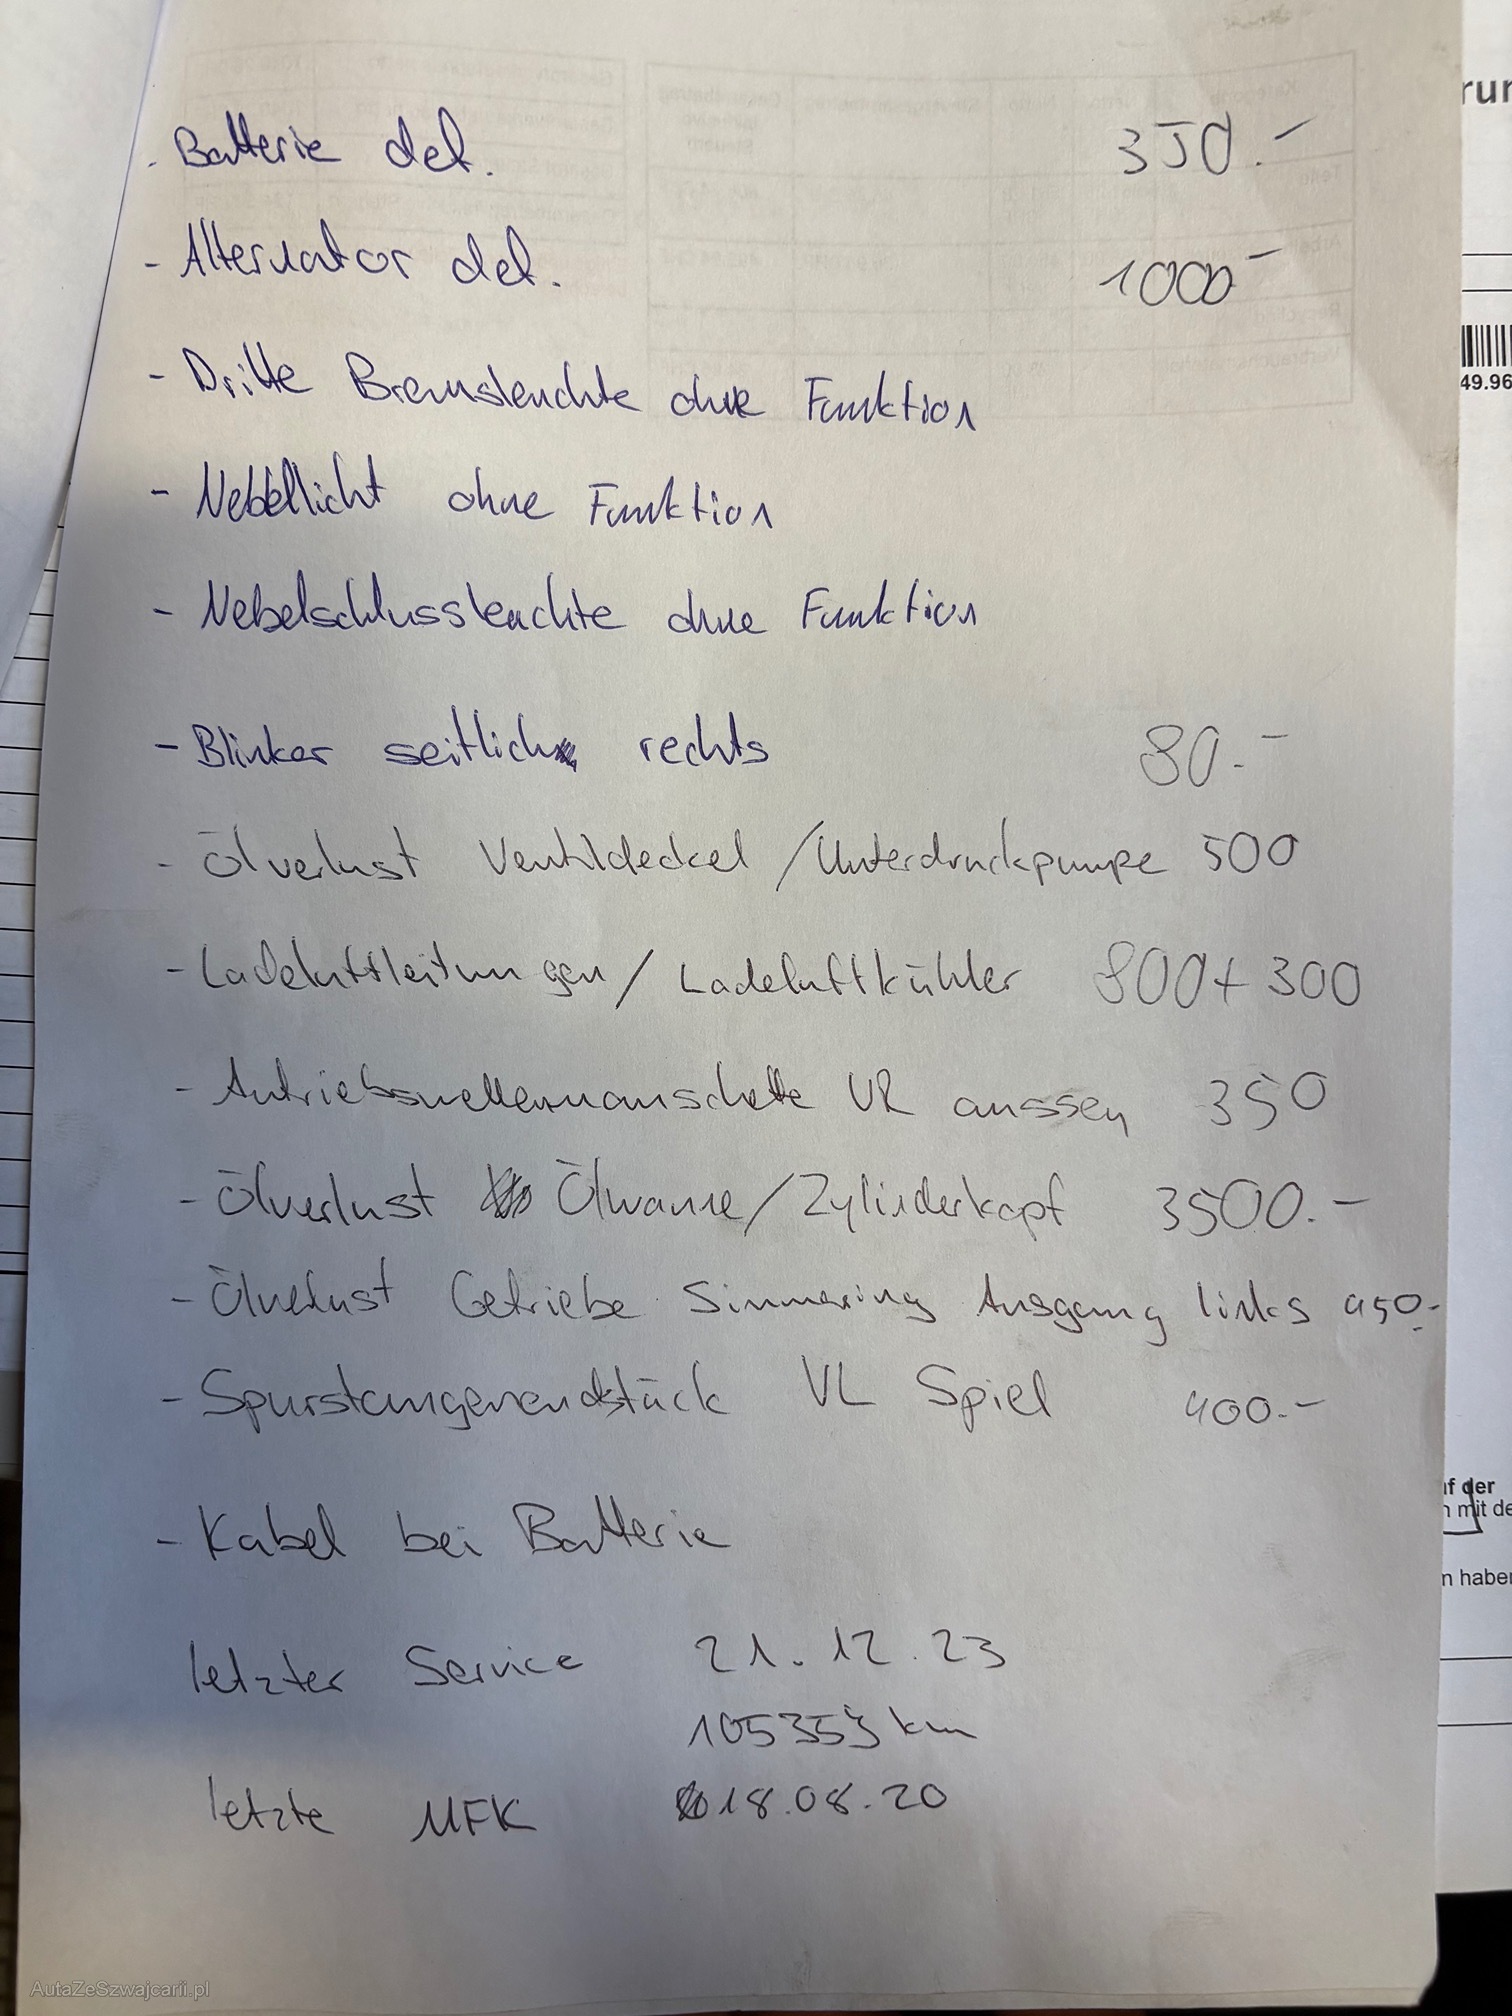 - Batterie def. 350.-
- Alternator def. 1000-
- Dritte Bremsleuchte ohne Funktion
- Nebellicht ohne Funktion
- Nebelschlussleuchte ohne Funktion
- Blinker seitlich rechts 80.-
- Ölverlust Ventildeckel / Unterdruckpumpe 500
- Ladeluftleitungen / Ladeluftkühler 800 + 300
- Antriebswellenmanschette VR aussen 350
- Ölverlust Ölwanne / Zylinderkopf 3500.-
- Ölverlust Getriebe Simmering Ausgang links 450.-
- Spurstangenendstück VL Spiel 400.-
- Kabel bei Batterie
letzter Service 21.12.23
km
letzte MFK 18.08.20
49.96
uf der
mit de
n haben
AutaZeSzwajcarii.pl